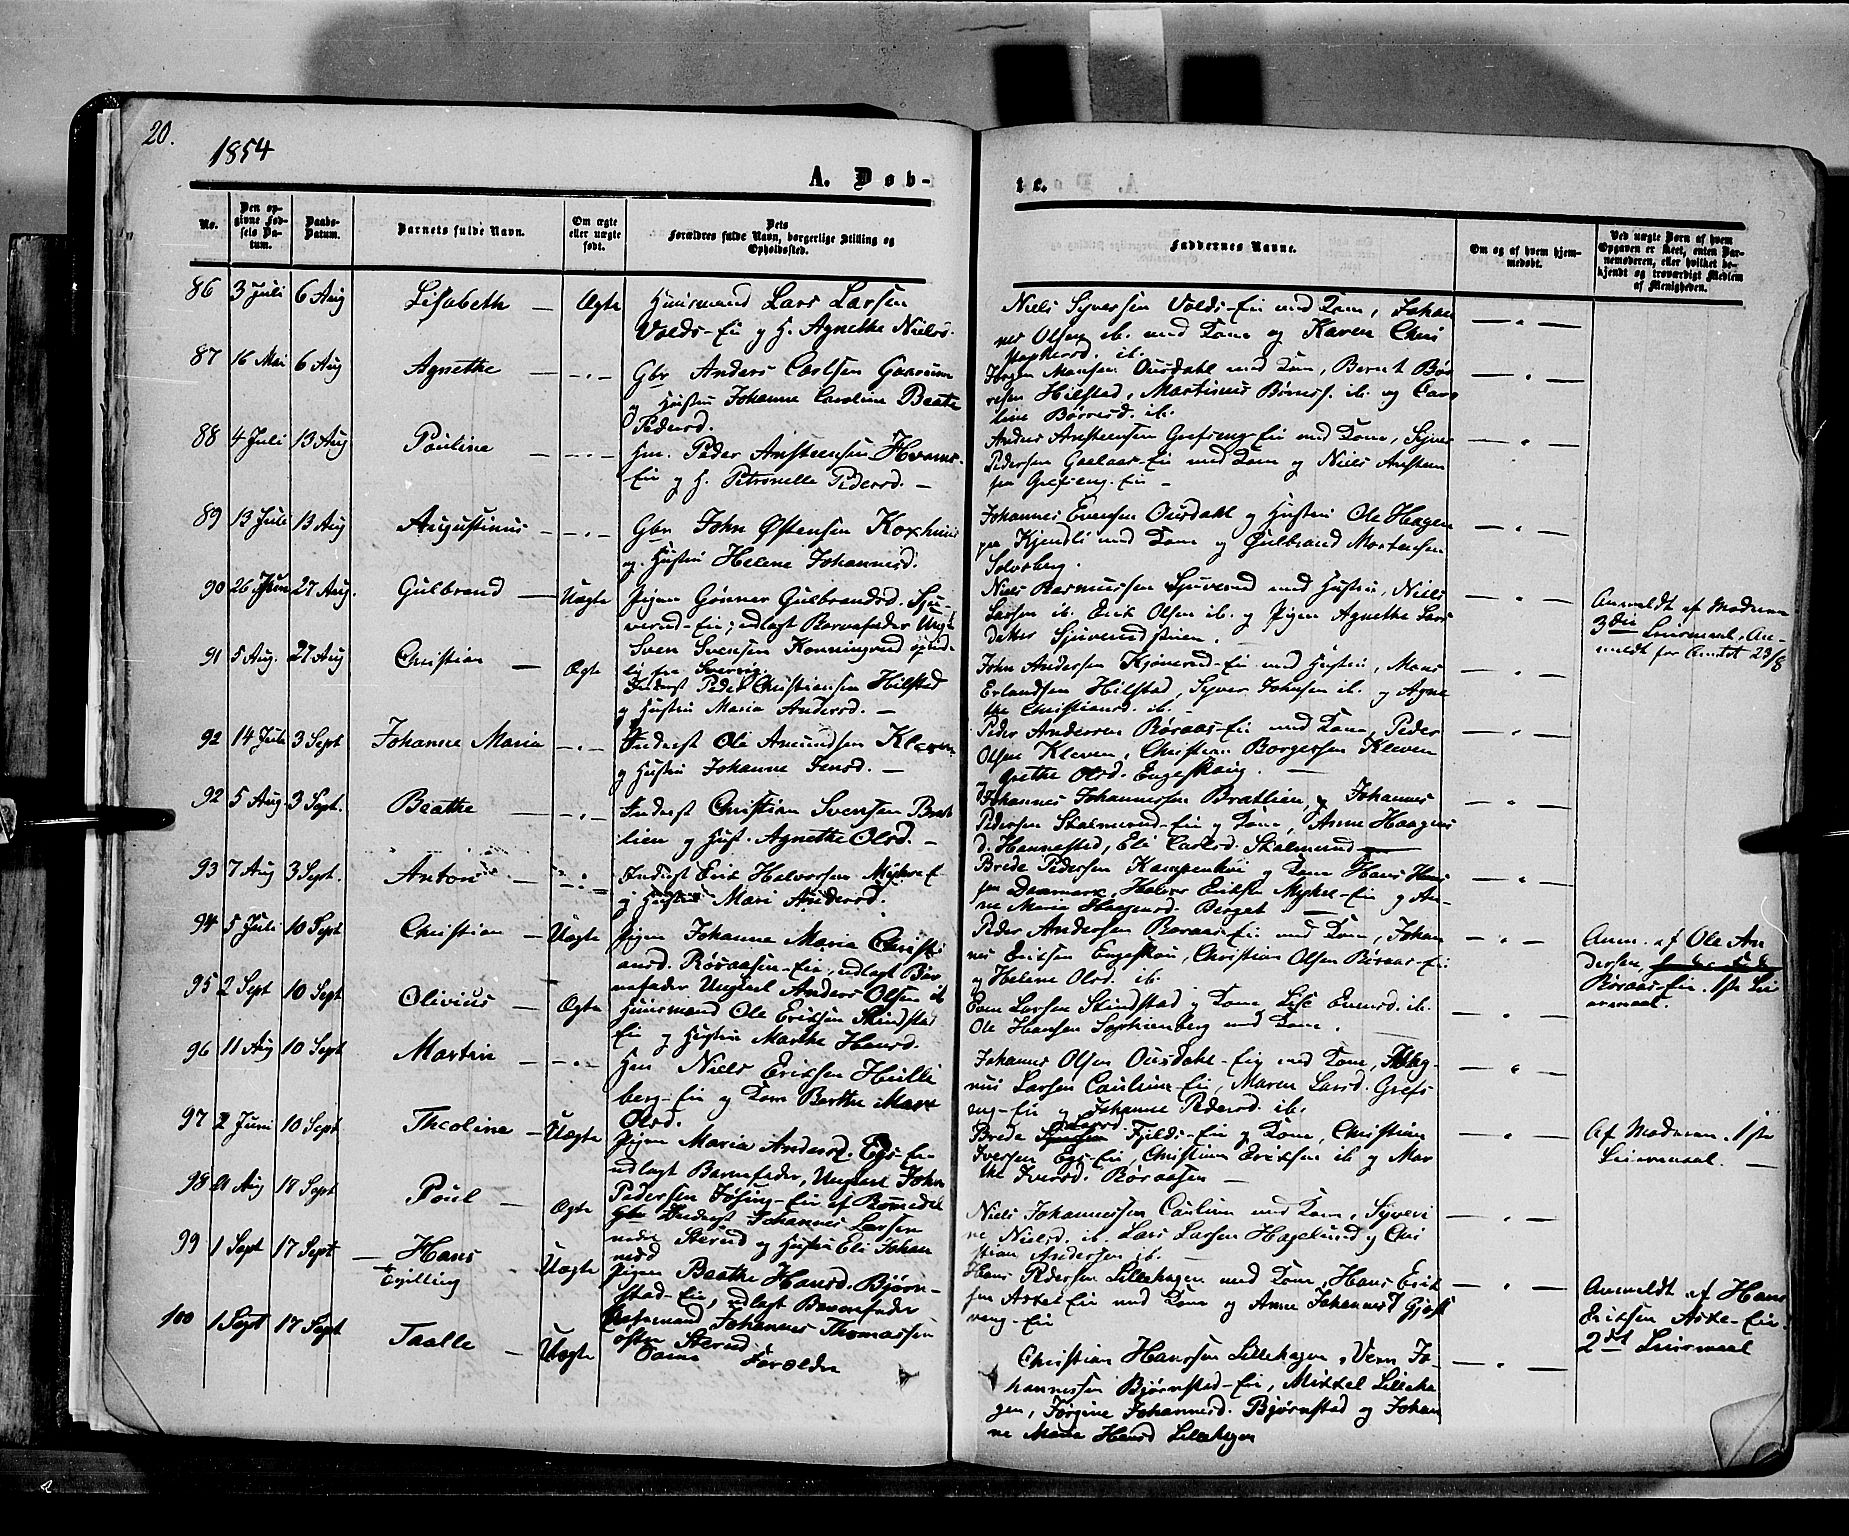 20.
1854
A. Døb-
te.
No.
Den op-
givne Fød-
sels Da-
tum.
Daabs-
Datum.
Barnets fulde Navn.
Om ægte
eller uægte
født.
Dets
Forældres fulde Navn, borgerlige Stilling og
Opholdssted.
Faddernes Navne.
Om og af hvem hjem-
medøbt.
Ved uægte Børn af hvem
Opgaven er skeet, enten Bar-
nemoderen, eller hvilket be-
kjendt og troværdigt Medlem
af Menigheden.
86 3 Juli 6 Aug Lisabeth — Ægte Huusmand Lars Larsen
Volds-Eie og H. Agnethe Nielsd.
Niels Syversen Volds-Eie med Kone, Johan
nes Olsen ib. med Kone og Karen Chri
stophersd. ib.
87 16 Mai 6 Aug Agnethe — Gbr Anders Carlsen
og Hustru Johanne Caroline Beate
Pedersd.
Jørgen Monsen Ousdahl med Kone, Bernt Bør
resen Hilstad, Martinus Børres. ib. og Caro
line Børresd. ib.
88 4 Juli 13 Aug Pauline — Hm. Peder Anstensen
Eie og H. Petronelle Pedersd. —
Anders Anstensen Grefseng-Eie med Kone, Syver
Pedersen Gaalaas-Eie med Kone og Niels Ansten
sen Grefseng-Eie —
89 13 Juli 13 Aug Augustinus — Gbr John Østensen
og Hustru Helene Johannesd.
Johannes Evensen Ousdahl og Hustru Ole Haagen
sen Kjendli med Kone og Gulbrand Mortensen
Solvberg.
90 26 Juni 27 Aug. Gulbrand — Uægte Pigen Gønner Gulbrandsd. Sju-
verud-Eie; udlagt Barnefader Ungk
Sven Svensen
fra Sverrig.
Niels Rasmussen Sjuverud med Hustru, Niels
Larsen ib. Erik Olsen ib. og Pigen Agnethe Lars
datter
Anmeldt af Moderen
3die Leiermaal. An-
meldt for Amtet 29/8
91 5 Aug. 27 Aug Christian — Ægte
Inderst Peder Christiansen Hilstad
og Hustru Maria Andersd. —
John Andersen Kjønerud-Eie med Hustru, Mons
Erlandsen Hilstad, Syver Johnsen ib. og Agne
the Christiansd. ib. —
92 14 Juli 3 Sept Johanne Maria — Inderst Ole Amundsen Kleven
og Hustru Johanne Jensd. —
Peder Andersen Røraas-Eie med Kone, Peder
Olsen Kleven, Christian Borgersen Kleven
Grethe Olsd. Engeskoug. —
92 5 Aug 3 Sept. Beathe — Inderst Christian Svensen Brat
lien og Hust. Agnethe Olsd. —
Johannes Johannessen Bratlien, og Johannes
Pedersen Skalmerud-Eie og Kone, Anne Haagens
d. Hannestad, Eli Carlsd. Skalmerud —
93 7 Aug 3 Sept. Anton — Inderst Erik Halvorsen Myhre E
og Hustru Mari Andersd.
Brede Pedersen og Kone Hans Han
sen Danmark, Halvor Eriksen Myhre-Eie og An-
ne Maria Haagensd. Berget —
94 5 Juli 10 Sept Christian — Uægte Pigen Johanne Maria Christi
ansd. Røraasen-Eie, udlagt Bar
nefader Ungkarl Anders Olsen ib
Peder Andersen Røraas-Eie med Kone, Johan
nes Eriksen Engeskou, Christian Olsen Røraas-Eie
og Helene Olsd. ib.
Anm. af Ole An
dersen
Røraas-Eie. 1ste Lei
ermaal.
95 2 Sept 10 Sept Olivius — Ægte Huusmand Ole Eriksen Skindstad
Eie og Hustru Marthe Hansd.
Larsen Skindstad og Kone, Lise Evensd. ib.
Ole Hansen Sophienberg med Kone.
96 11 Aug 10 Sept Martin — Hm Niels Eriksen Hulli
berg-Eie og Kone Berthe Marie
Olsd.
Johannes Olsen Ousdahl-Eie med Kone, Mag
nus Larsen Caulum-Eie, Maren Larsd. Grefs
eng-Eie og Johanne Pedersd. ib.
97 2 Juni 10 Sept Theoline — Uægte Pigen Maria Andersd. Egs-Eie
udlagt Barnefader, Ungkarl John
Pedersen Jøsing-Eie af Romedal
Brede Fjelds-Eie og Kone, Christian
Iversen Egs-Eie, Christian Eriksen ib og Mar
the Iversd. Røraasen —
Af Moderen. 1ste
Leiermaal. —
98 21 Aug 17 Sept Poul — Ægte Inderst Johannes Larsen
nedre Sterud og Hustru Eli Johan
nesd
Niels Johannessen Caulum med Kone, Syveri
ne Nielsd. ib. Lars Larsen Hagelund og Chri
stian Andersen ib. —
99 1 Sept 17 Sept — Hans
Tvilling — Uægte Pigen Beathe Hansd. Bjørn-
stad-Eie, udlagt Barnefader
Johannes Thomassen
østre Sterud.
Hans Pedersen Lillehagen med Kone, Hans Erik
sen Aske Eie med Kone og Anne Johannesd Grefs
veng-Eie
Anmeldt af Hans
Eriksen Aske-Eie.
2det Leiermaal
100 1 Sept 17 Sept Taalle — Uægte Samme Forældre
Christian Hanssen Lillehagen, Jo-
hannessen Bjørnstad-Eie, Mikkel Lilleha
gen, Jørgine Johannesd. Bjørnstad og Johan
ne Marie Hansd Lillehagen